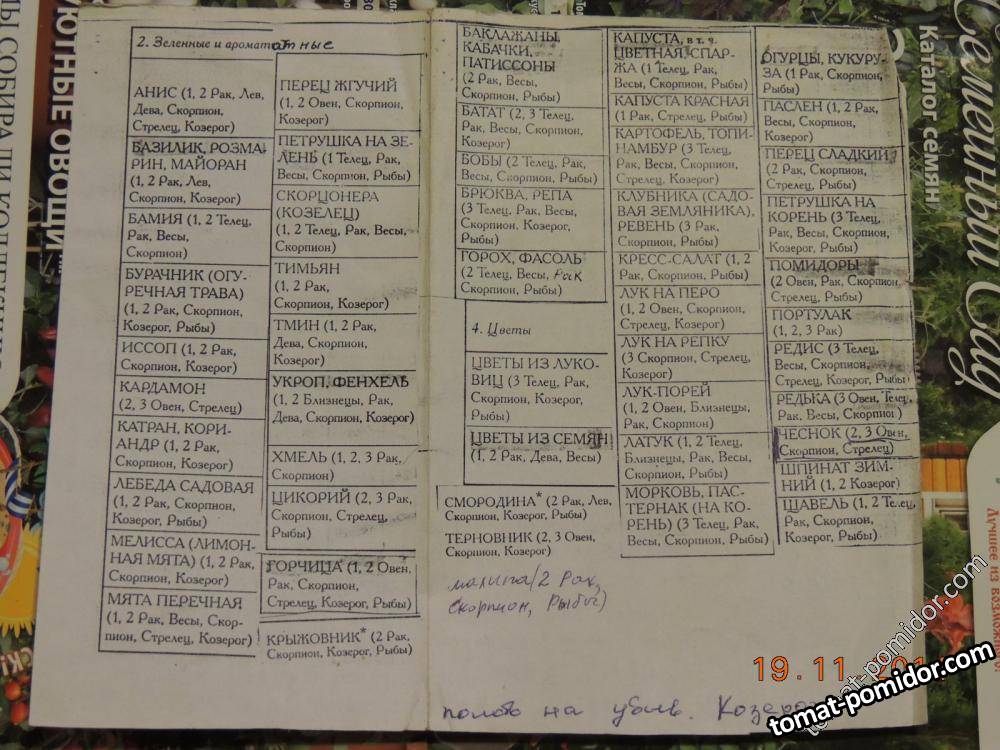 2. Зеленные и ароматные
АНИС (1, 2 Рак, Лев,
Дева, Скорпион,
Стрелец, Козерог)
БАЗИЛИК, РОЗМА
РИН, МАЙОРАН
(1, 2 Рак, Лев,
Скорпион, Козерог)
БАМИЯ (1, 2 Телец,
Рак, Весы,
Скорпион)
БУРАЧНИК (ОГУ-
РЕЧНАЯ ТРАВА)
(1, 2 Рак, Скорпион,
Козерог, Рыбы)
ИССОП (1, 2 Рак,
Скорпион, Козерог)
КАРДАМОН
(2, 3 Овен, Стрелец)
КАТРАН, КОРИ-
АНДР (1, 2 Рак,
Скорпион, Козерог)
ЛЕБЕДА САДОВАЯ
(1, 2 Рак, Скорпион,
Козерог, Рыбы)
МЕЛИССА (ЛИМОН-
НАЯ МЯТА) (1, 2 Рак,
Скорпион, Козерог)
МЯТА ПЕРЕЧНАЯ
(1, 2 Рак, Весы, Скор-
пион, Стрелец, Козерог)
ПЕРЕЦ ЖГУЧИЙ
(1, 2 Овен, Скорпион,
Козерог)
ПЕТРУШКА НА ЗЕ-
ЛЕНЬ (1 Телец, Рак,
Весы, Скорпион, Рыбы)
СКОРЦОНЕРА
(КОЗЕЛЕЦ)
(1, 2 Телец, Рак, Весы,
Скорпион)
ТИМЬЯН
(1, 2 Рак,
Скорпион, Козерог)
ТМИН (1, 2 Рак,
Дева, Скорпион,
Козерог)
УКРОП, ФЕНХЕЛЬ
(1, 2 Близнецы, Рак,
Дева, Скорпион, Козерог)
ХМЕЛЬ (1, 2, 3 Рак,
Скорпион)
ЦИКОРИЙ (2, 3 Рак,
Скорпион, Стрелец,
Рыбы)
ГОРЧИЦА (1, 2 Овен,
Рак, Скорпион,
Стрелец, Козерог, Рыбы)
КРЫЖОВНИК* (2 Рак,
Скорпион, Козерог, Рыбы)
БАКЛАЖАНЫ,
КАБАЧКИ,
ПАТИССОНЫ
(2 Рак, Весы,
Скорпион, Рыбы)
БАТАТ (2, 3 Телец,
Рак, Весы, Скорпион,
Козерог)
БОБЫ (2 Телец, Рак,
Весы, Скорпион, Рыбы)
БРЮКВА, РЕПА
(3 Телец, Рак, Весы,
Скорпион, Козерог,
Рыбы)
ГОРОХ, ФАСОЛЬ
(2 Телец, Весы, Рак
Скорпион, Рыбы)
4. Цветы
ЦВЕТЫ ИЗ ЛУКО-
ВИЦ (3 Телец, Рак,
Скорпион, Козерог,
Рыбы)
ЦВЕТЫ ИЗ СЕМЯН
(1, 2 Рак, Дева, Весы)
СМОРОДИНА* (2 Рак, Лев,
Скорпион, Козерог, Рыбы)
ТЕРНОВНИК (2, 3 Овен,
Скорпион, Козерог)
малина (2 Рак,
Скорпион, Рыбы)
КАПУСТА, в т. ч.
ЦВЕТНАЯ, СПАР-
ЖА (1 Телец, Рак,
Весы, Скорпион, Рыбы)
КАПУСТА КРАСНАЯ
(1 Рак, Стрелец, Рыбы)
КАРТОФЕЛЬ, ТОПИ-
НАМБУР (3 Телец,
Рак, Весы, Скорпион,
Стрелец, Козерог)
КЛУБНИКА (САДО-
ВАЯ ЗЕМЛЯНИКА),
РЕВЕНЬ (3 Рак,
Скорпион, Рыбы)
КРЕСС-САЛАТ (1, 2
Рак, Скорпион, Козерог)
ЛУК НА ПЕРО
(1, 2 Овен, Скорпион,
Стрелец, Козерог)
ЛУК НА РЕПКУ
(3 Скорпион, Стрелец,
Козерог)
ЛУК-ПОРЕЙ
(1, 2 Овен, Близнецы,
Рак, Скорпион)
ЛАТУК (1, 2 Телец,
Близнецы, Рак, Весы,
Скорпион, Рыбы)
МОРКОВЬ, ПАС-
ТЕРНАК (НА КО-
РЕНЬ) (3 Телец, Рак,
Весы, Скорпион, Рыбы)
ОГУРЦЫ, КУКУРУ-
ЗА (1 Рак, Скорпион,
Рыбы)
ПАСЛЕН (1, 2 Рак,
Весы, Скорпион,
Козерог)
ПЕРЕЦ СЛАДКИЙ
(2 Рак, Скорпион,
Стрелец, Рыбы)
ПЕТРУШКА НА
КОРЕНЬ (3 Телец,
Рак, Весы, Скорпион,
Козерог, Рыбы)
ПОМИДОРЫ
(2 Овен, Рак, Скорпион,
Стрелец, Рыбы)
ПОРТУЛАК
(1, 2, 3 Рак)
РЕДИС (3 Телец,
Весы, Скорпион,
Стрелец, Козерог, Рыбы)
РЕДЬКА (3 Овен, Телец,
Рак, Весы, Скорпион)
ЧЕСНОК (2, 3 Овен,
Скорпион, Стрелец)
ШПИНАТ ЗИМ-
НИЙ (1, 2 Козерог)
ЩАВЕЛЬ (1, 2 Телец,
Рак, Скорпион,
Козерог, Рыбы)
на убыв.
19.11
tomat-pomidor.com
tomat-pomidor.com
Каталог семян